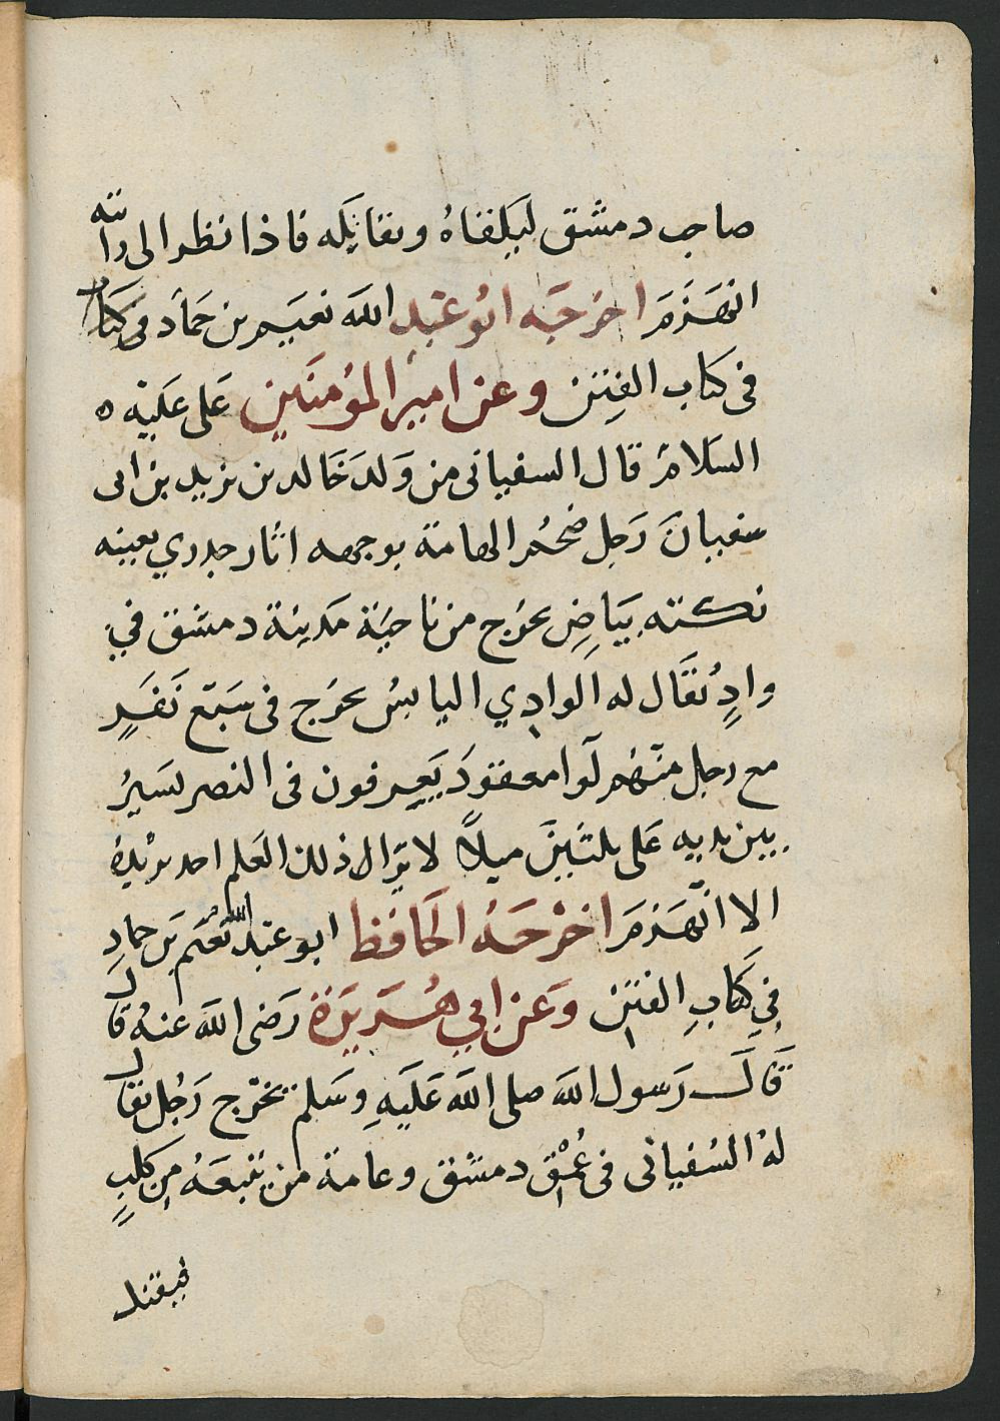 صاحب دمشق ليلقاهُ ويقاتِله فاذا نظر الى رايته
انهَزَمَ اخرَجَه ابُو عَبْدِ اللَه نعيَم بن حَمَاد في كتَاب
في كتاب الفِتَن وعن اميرُ المؤمنَين عَلى عَليَه ه
السَلامُ قال السفيانى من وَلد خَالد بن يزيد بن ابى
سفيانَ رَجل ضخُم الهامة بوجهه اثار جدري بعينه
نكتته بيَاضٍ يخرج من ناحيَة مَدينة دمشق في
وادٍ يُقَال له الوادِي اليابسُ يخرَج فى سَبَع نَفَرٍ
مع رجل منهُم لوا معقودَ يَعرفون فى النصر يسَيرُ
بين يديه عَلى ثلثَينَ ميلاً لا يرَال ذلك العَلم احد يريدهُ
الا انهَزمَ اخرْجَهُ الحَافظ ابو عَبد الله نُعَيم بَن حمادِ
فِي كَتابِ الفتَن وَعَن ابِي هُرَيرَة رَضى اللَه عنهُ قال
قَالَ رَسول اللَه صلى اللَه عَليَهِ وسَلم يخرج رَجُل يقال
لهُ السُفيانى فى عُمْق دمشق وعامة من يتبعَهُ مِن كلبٍ
فيقتل